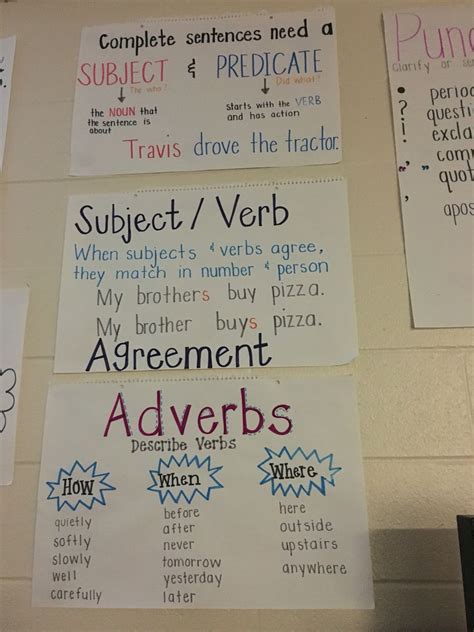 Complete sentences need a
SUBJECT & PREDICATE
The who? Did what?
the NOUN that
the sentence is
about
Starts with the VERB
and has action
Travis drove the tractor.
Subject / Verb
When subjects & verbs agree,
they match in number & person
My brothers buy pizza.
My brother buys pizza.
Agreement
Adverbs
Describe Verbs
How
quietly
softly
slowly
well
carefully
When
before
after
never
tomorrow
yesterday
later
Where
here
outside
upstairs
anywhere
Pun
Clarify or se
. perio
? questi
! excla
, com
" " quot
apos